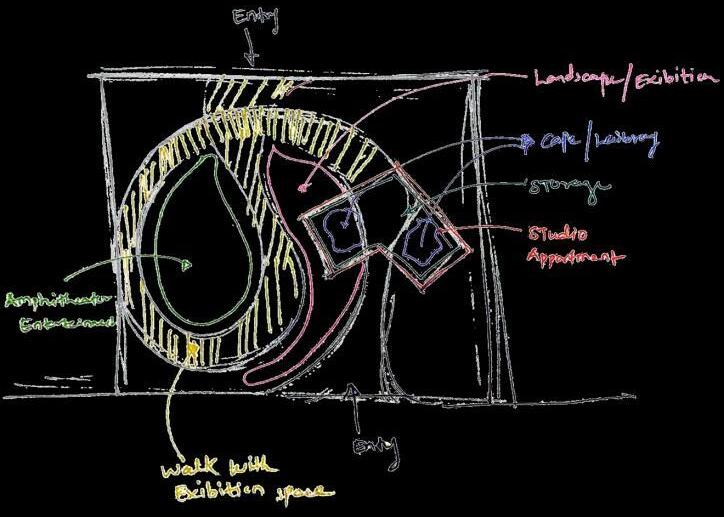 Entry
Landscape/Exibition
Cafe/Laibrary
Storage
Studio
Appartment
Amphitheater
Entertained
Entry
Walk with
Exibition space